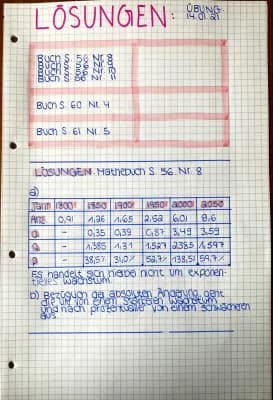 LÖSUNGEN: ÜBUNG
14.01.21
Buch S. 56 Nr. 8
Buch S. 56 Nr. 9
Buch S. 56 Nr. 10
Buch S. 56 Nr. 11
Buch S. 60 Nr. 4
Buch S. 61 Nr. 5
LÖSUNGEN: Mathebuch S. 56 Nr. 8
a)
Jahr 1800 1850 1900 1950 2000 2050
Anz. 0,91 1,26 1,65 2,52 6,01 9,6
d - 0,35 0,39 0,87 3,49 3,59
q - 1,385 1,31 1,527 2,385 1,597
p - 38,5% 31,0% 52,7% 138,5% 59,7%
Es handelt sich hierbei nicht um exponen-
tielles Wachstum.
b) Bezüglich der absoluten Änderung geht
die UN von einem stärkeren Wachstum
und nach prozentualer von einem schwächeren
aus.